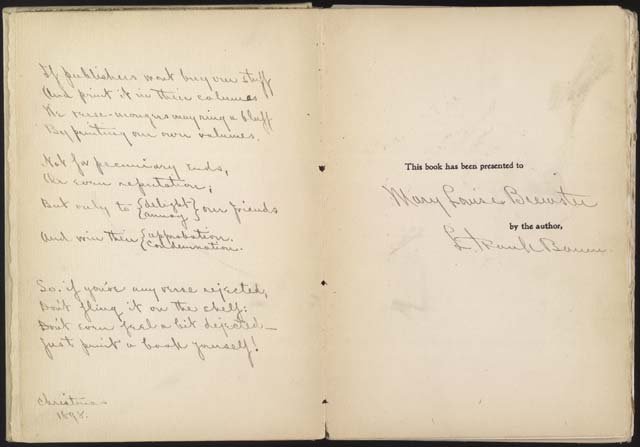 If publishers wont buy our stuff
And print it in their columns
We verse-mongers may ring a bluff
By printing our own volumes.
Not for pecuniary ends,
Or even reputation;
But only to {delight / annoy} our friends
And win their {approbation. / condemnation.
So: if you've any verse rejected,
Don't fling it on the shelf:
Don't even feel a bit dejected—
Just print a book yourself!
Christmas
1898.
This book has been presented to
Mary Louise Brewster
by the author,
L. Frank Baum.